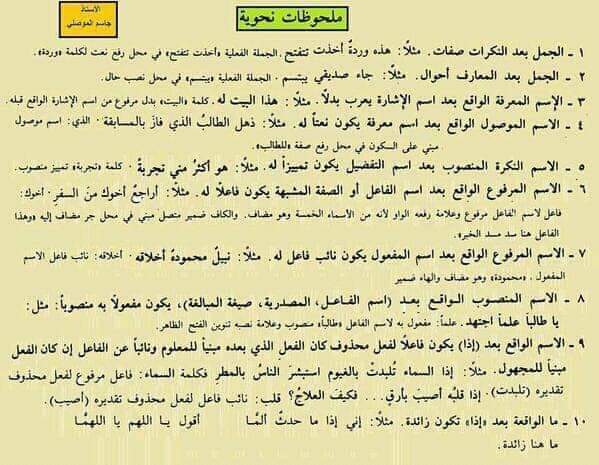 الأستاذ
جاسم الموصلي
ملحوظات نحوية
١ ـ الجمل بعد النكرات صفات. مثلًا: هذه وردةٌ أخذت تتفتح. الجملة الفعلية «أخذت تتفتح» في محل رفع نعت لكلمة «وردة».
٢ ـ الجمل بعد المعارف أحوال. مثلًا: جاء صديقي يبتسم. الجملة الفعلية «يبتسم» في محل نصب حال.
٣ ـ الإسم المعرفة الواقع بعد اسم الإشارة يعرب بدلًا. مثلًا: هذا البيت له. كلمة «البيت» بدل مرفوع من اسم الإشارة الواقع قبله.
٤ ـ الاسم الموصول الواقع بعد اسم معرفة يكون نعتاً له. مثلًا: ذهل الطالبُ الذي فازَ بالمسابقة. الذي: اسم موصول
مبني على السكون في محل رفع صفة «للطالب».
٥ ـ الاسم النكرة المنصوب بعد اسم التفضيل يكون تمييزاً له. مثلًا: هو أكثرُ مني تجربةً. كلمة «تجربة» تمييز منصوب.
٦ ـ الاسم المرفوع الواقع بعد اسم الفاعل أو الصفة المشبهة يكون فاعلًا له. مثلًا: أراجعٌ أخوك منَ السفرِ. أخوك:
فاعل لاسم الفاعل مرفوع وعلامة رفعه الواو لأنه من الأسماء الخمسة وهو مضاف. والكاف ضمير متصل مبني في محل جر مضاف إليه «وهذا
الفاعل هنا سد مسد الخبر».
٧ ـ الاسم المرفوع الواقع بعد اسم المفعول يكون نائب فاعل له. مثلًا: نبيلٌ محمودةٌ أخلاقه. أخلاقه: نائب فاعل الاسم
المفعول. «محمودة» وهو مضاف والهاء ضمير
٨ ـ الاسم المنصوب الواقع بعد (اسم الفاعل، المصدرية، صيغة المبالغة)، يكون مفعولًا به منصوباً: مثل:
يا طالباً علماً اجتهد. علماً: مفعول به لاسم الفاعل «طالباً» منصوب وعلامة نصبه تنوين الفتح الظاهر.
٩ ـ الاسم الواقع بعد (إذا) يكون فاعلًا لفعل محذوف كان الفعل الذي بعده مبنياً للمعلوم ونائباً عن الفاعل إن كان الفعل
مبنياً للمجهول. مثلًا: إذا السماء تُلبدتْ بالغيوم استبشرَ الناسُ بالمطرِ فكلمة السماء: فاعل مرفوع لفعل محذوف
تقديره (تلبدت). إذا قلبُه أصيبَ بأرقٍ... فكيفَ العلاجُ؟ قلب: نائب فاعل لفعل محذوف تقديره (أصيب).
١٠ ـ ما الواقعة بعد «إذا» تكون زائدة. مثلًا: إني إذا ما حدثٌ ألمَّا أقول يا اللهم يا اللهمَّا
ما هنا زائدة.